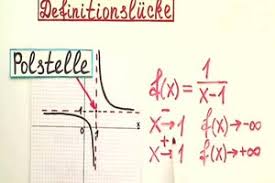 Definitionslücke
Polstelle
f(x) = 1/(x-1)
x → 1⁻ f(x) → -∞
x → 1⁺ f(x) → +∞
1
0
1
x